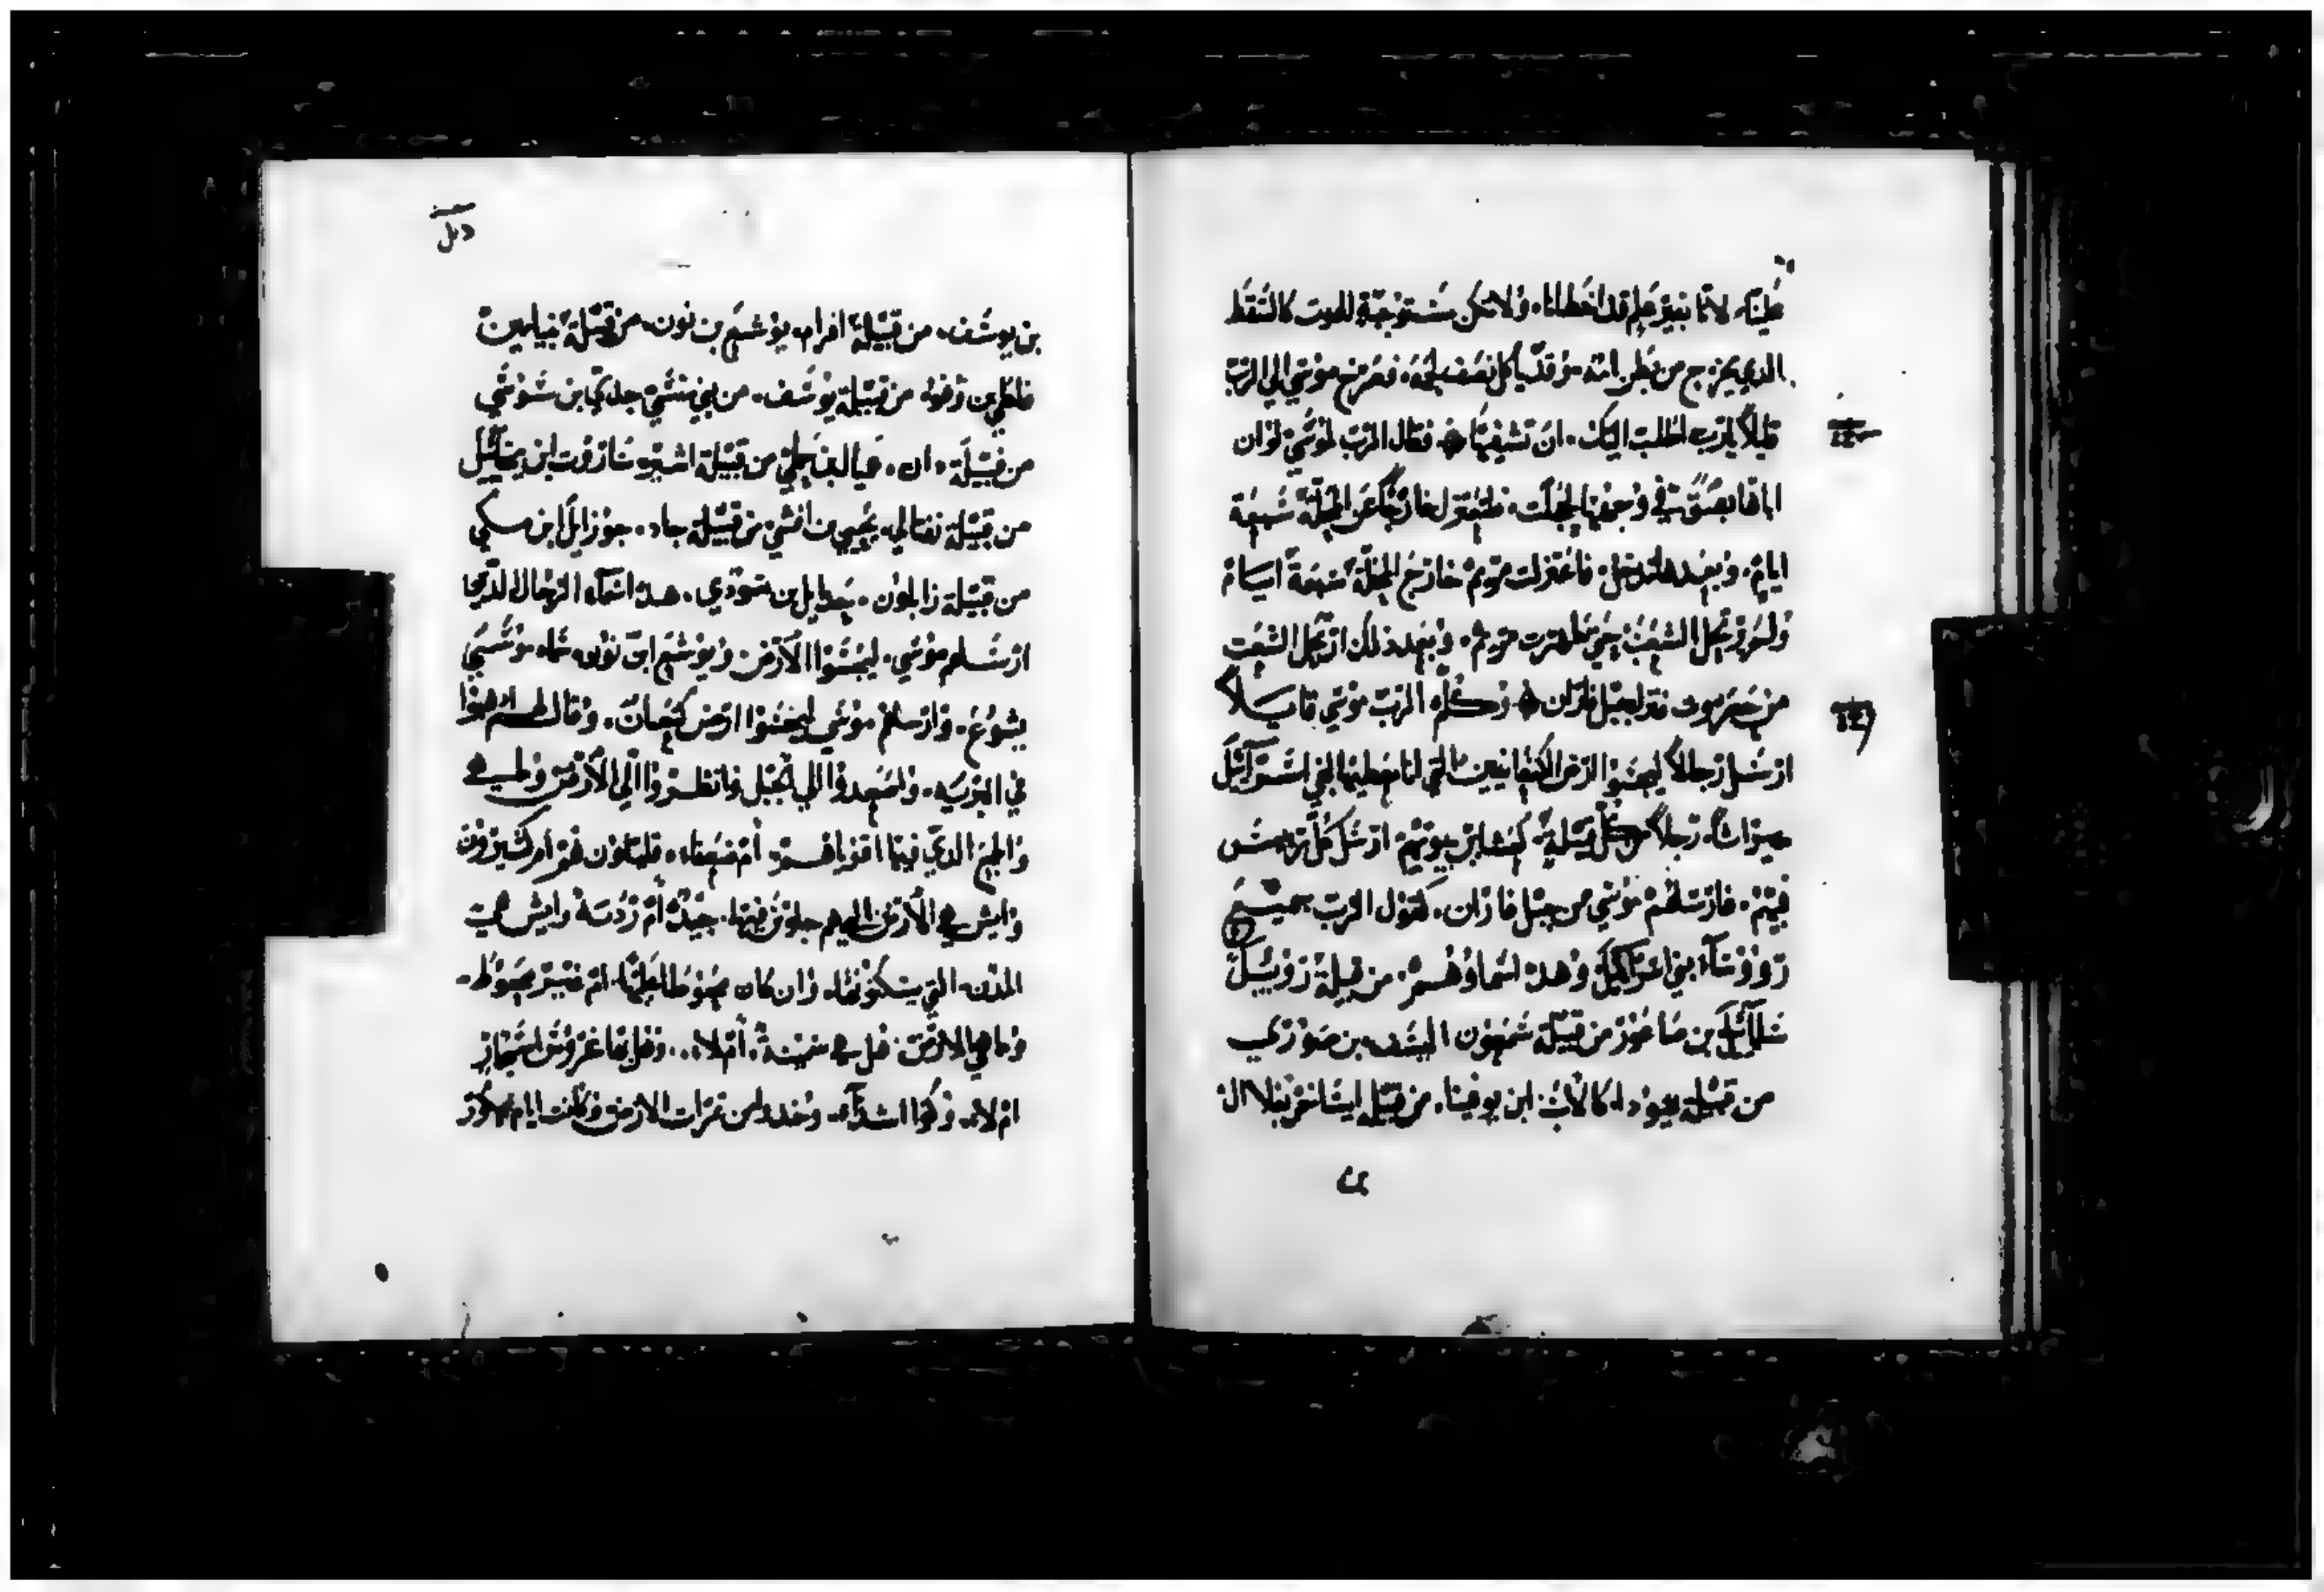 علينا. لاننا بغير علم قد اخطانا. ولا تكن مستوجبة للموت كالسقط
الدي يخرج من بطن امه وقد ياكل نصف لحمه. فصرخ موسي الي الرب
قليلاً يارب اطلب اليك. ان تشفيها فقال الرب لموسي لو ان
اباها بصق في وجهها لخجلت. فلتعتزل خارجًا عن المحلة سبعة
ايام. وبعد هدا تدخل. فاعتزلت مريم خارج المحلة سبعة ايام
ولم يرتحل الشعب حتي تطهرت مريم. وبعد ذلك ارتحل الشعب
من حضرموت ونزل جبل فاران وكلم الرب موسي قايلاً
ارسل رجالاً ليجسوا ارض الكنعانيين التي انا معطيها لبني اسرآئيل
ميراثاً. رجلاً من كل قبيلة كعشاير بيوتهم. ارسل كل رييس
فيهم. فارسلهم موسي من جبل فاران. كقول الرب جميع
روؤسآء بني اسرآئيل وهده اسماوهم. من قبيلة روبيل
من قبيلة شمعون بن صوري
من قبيلة يهودا. كالاب ابن يوفينا. من قبيلة ايساخر
٤٢
بن يوسف. من قبيلة افرام يوشع بن نون. من قبيلة بنيامين
فلطي بن رفوا. من قبيلة يوسف. من بني منشي جدي بن سوسي
من قبيلة دان. من قبيلة اشير
من قبيلة نفتالي. من قبيلة جاد.
من قبيلة زابلون. بن سودي. هده اسمآء الرجال الدين
ارسلهم موسي. ليجسوا الارض ويوشع ابن نون سماه موسي
يشوع. وارسلهم موسي ليجسوا ارض كنعان. وقال لهم اصعدوا
في البرية. واصعدوا الي الجبل فانظروا الي الارض
والجمع الدي فيها اقويا هم ام ضعفاء. قليلون هم ام كثيرون
وايش هي الارض التي هم جلوس فيها. جيدة ام ردية وايش هي
المدن التي يسكنونها. وان كان ام بغير
وما هي الارض. هل هي سمينة. ام لا. وهل بها غروس اشجار
ام لا. وكونوا اشدآء. وخدوا من ثمرات الارض وكانت ايام